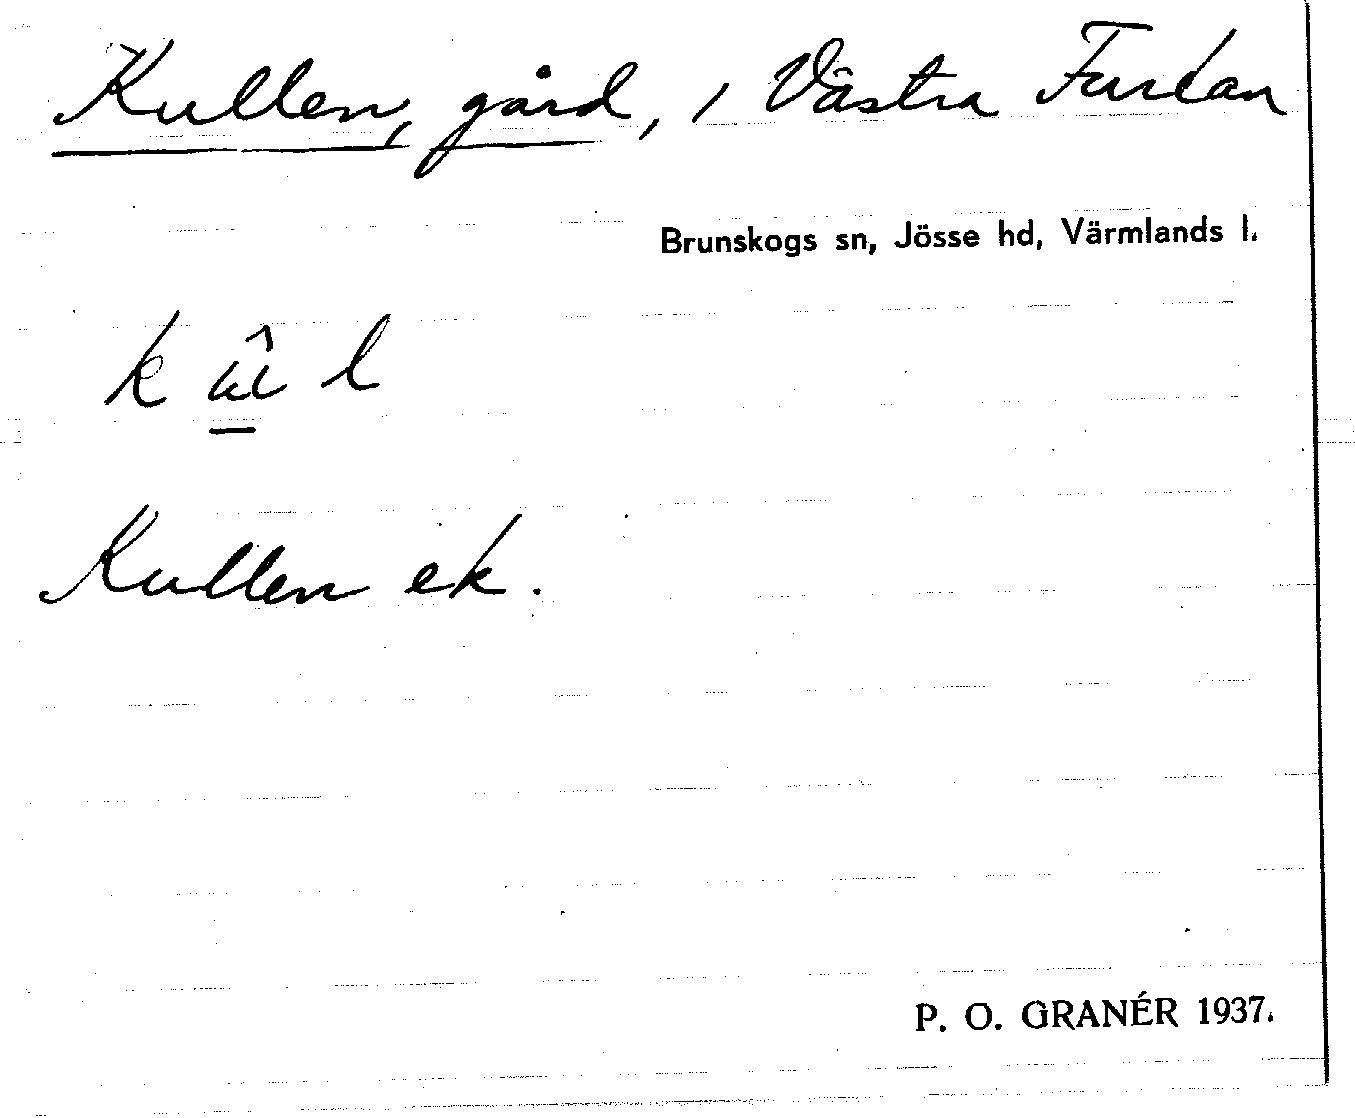 Kullen, gård, i Västra Furtan
Brunskogs sn, Jösse hd, Värmlands l.
Kullen ek.
P. O. GRANÉR 1937.